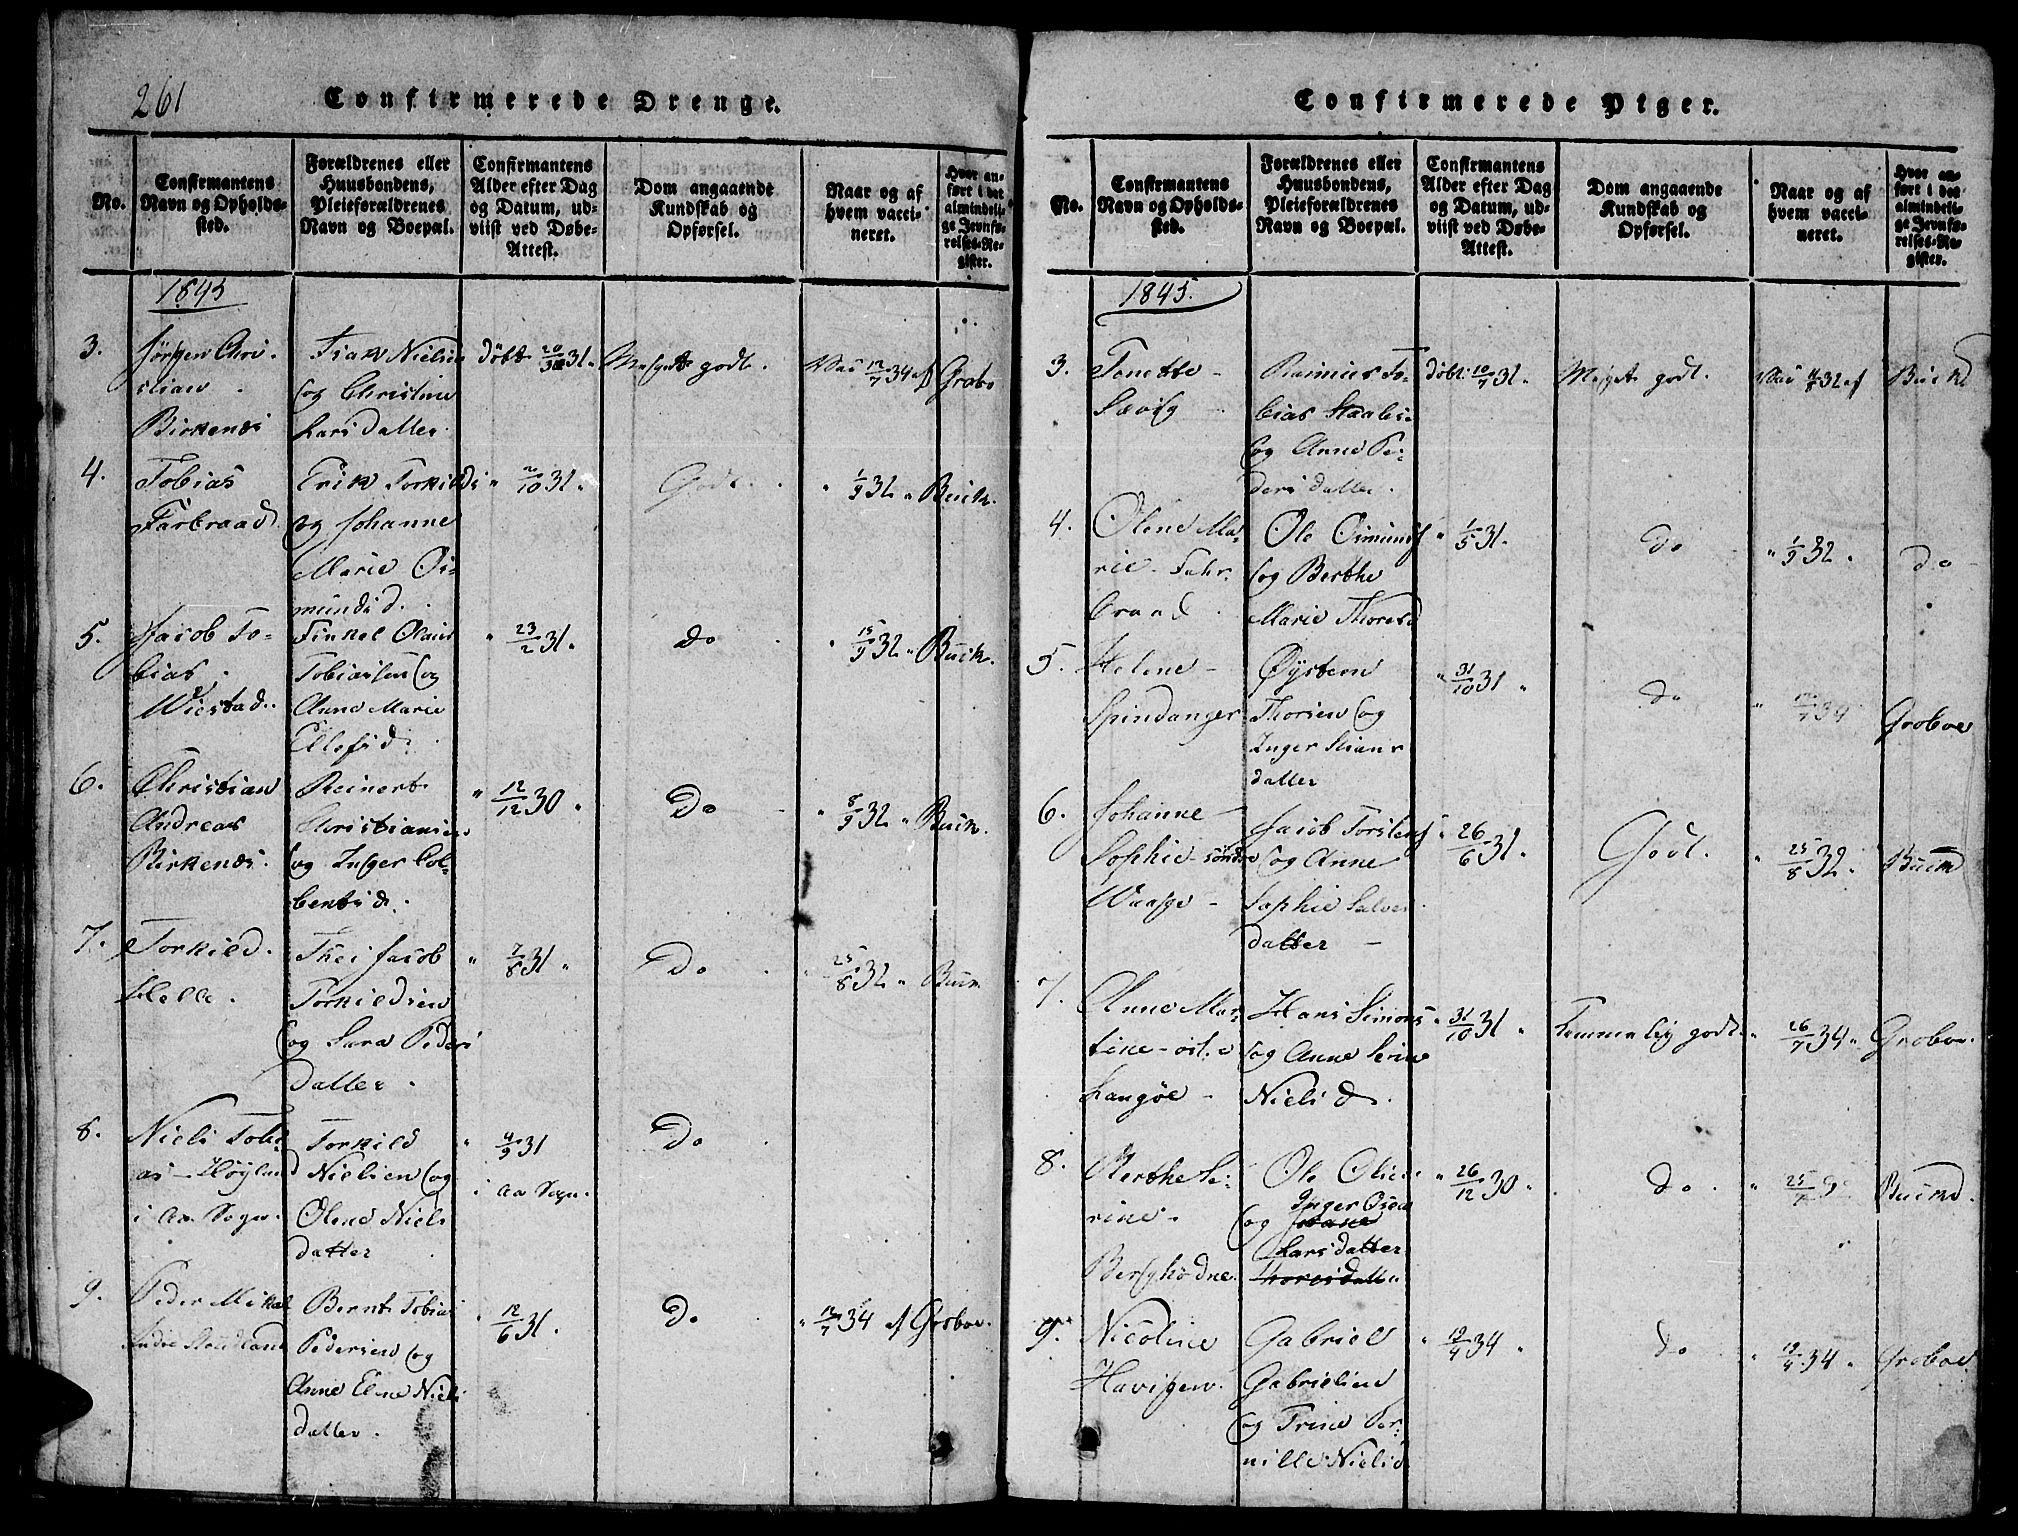 261
Confirmerede Drenge.
No.
Confirmantens
Navn og Opholds-
sted.
Forældrenes eller
Huusbondens,
Pleieforældrenes
Navn og Boepæl.
Confirmantens
Alder efter Dag
og Datum, ud-
viist ved Døbe-
Attest.
Dom angaaende
Kundskab og
Opførsel.
Naar og af
hvem vacci-
neret.
Hvor an-
ført i det
almindeli-
ge Jevnfø-
relses-Re-
gister.
1845
3.
Jørgen Chri-
stian
Birkenes
Isak Nielsen
og Christine
Larsdatter.
døbt 31.
Meget godt.
Vac 12/7 34 af
Grobo
4.
Tobias
Farbraad
Erik Torkilds
og Johanne
Marie Os-
mundsd.
" 2/10 31 "
Godt.
" 1/9 32 "
Buck.
5.
Jacob To-
bias
Wiestad.
Finkel Olaus
Tobiassen og
Anne Marie
Ellefsd.
" 23/2 31.
Do
" 15/9 32 "
Buck.
6.
Christian
Andreas
Birkenes.
Reinert
Christiansen
og Inger Col-
bentsd.
" 12/12 30 "
Do
" 8/9 32 "
Buck.
7.
Torkild
Helle.
Thei Jacob
Torkildsen
og Sara Peders
datter.
" 7/8 31 "
Do
" 25/8 32 "
Buck
8.
Niels Tobi
as - Høyland
i Aa Sogn.
Torkild
Nielsen og
Olene Niels
datter
" 4/9 31
i Aa Sogn.
Do
9.
Peder Mikal
Indre
Bernt Tobias
Pedersen og
Anne Elene Niels
datter.
" 12/6 31.
Do
" 12/7 34 af
Groboe.
Confirmerede Piger.
No.
Confirmantens
Navn og Opholds-
sted.
Forældrenes eller
Huusbondens,
Pleieforældrenes
Navn og Boepæl.
Confirmantens
Alder efter Dag
og Datum, ud-
viist ved Døbe-
Attest.
Dom angaaende
Kundskab og
Opførsel.
Naar og af
hvem vacci-
neret.
Hvor an-
ført i det
almindeli-
ge Jevnfø-
relses-Re-
gister.
1845.
3.
Tonette
Sævig
Rasmus To-
bias
og Anne Pe-
dersdatter.
døbt 10/7 31.
Meget godt.
Vac 32 af
4.
Olene Ma-
rie - Fahr-
braad
Ole Osmunds
og Berthe
Marie Thoresd
" 1/5 31.
do
" 1/9 32 "
do
5.
Helene -
Spindanger
Øystein
Thorsen og
Inger Stians
datter
" 31/10 31 "
do
" 12/7 34
Groboe
6.
Johanne
Sophie - Søndre
Waage -
Jacob Torstens
og Anne
Sophie Salves
datter -
" 26/6 31 "
Godt.
" 25/8 32 "
7.
Anne Mar-
tine -
Langøe -
Hans Simons
og Anne Serine
Nielsd.
" 31/10 31 "
Temmelig godt.
" 26/7 34 "
Groboe.
8.
Berthe Se-
rine -
Berghodne.
Ole Olsen
og Inger
Larsdatter
Thoresdatter
" 26/12 30 "
do.
9.
Nicoline
Gabriel
Gabrielsen
og Trine Per-
nille Nielsd
" 12/4 34 "
do
" 12/4 34 "
Groboe